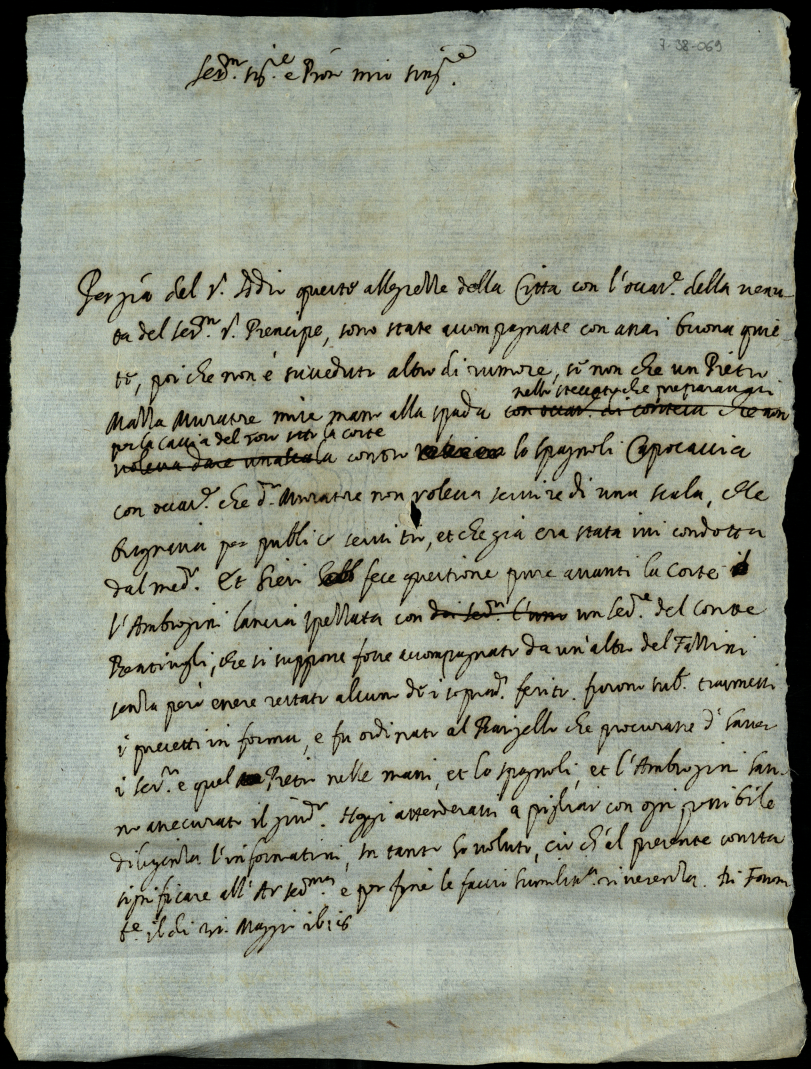 7-38-069
Ser.mo Sig.re e Pron mio sing.re
Per grã del S.r Iddio queste allegrezze della Città con l'occas.e della venu-
ta del ser.mo S.r Prencipe, sono state accompagnate con assai buona quie
te, poi che non è succeduto altro di rumore, se non che un Pietro
nello steccato che preparavasi
Mazza Muratore mise mano alla spada con occas.e di contesa che non
per la caccia del toro sotto la corte
voleva dare una scala contro lo spagnoli Capocaccia
con occas.e che d.o Muratore non voleva servire di una scala, che
bisognava per publico servitio, et che già era stata ivi condotta
dal med.o Et hieri fece questione pure avanti la Corte
l'Ambrogini lancia spezzata con un Ser.re del Conte
Bentivogli, che si suppone fosse accompagnato da un'altro del Fassini
senza però essere restato alcuno de i soprad.i ferito. furono sub.o trasmessi
i precetti in forma, e fu ordinato al Bargello che procurasse d'haver
i ser.ri e quel Pietro nelle mani, et lo spagnoli, et l'Ambrogini han-
no assecurato il giud.o Hoggi attenderassi a pigliar con ogni possibile
diligenza l'informationi, In tanto ho voluto, ciò ch'al presente consta
significare all'A. v. ser.ma e per fine le faccio humiliss.a riverenza. Di
il di Maggio 1616